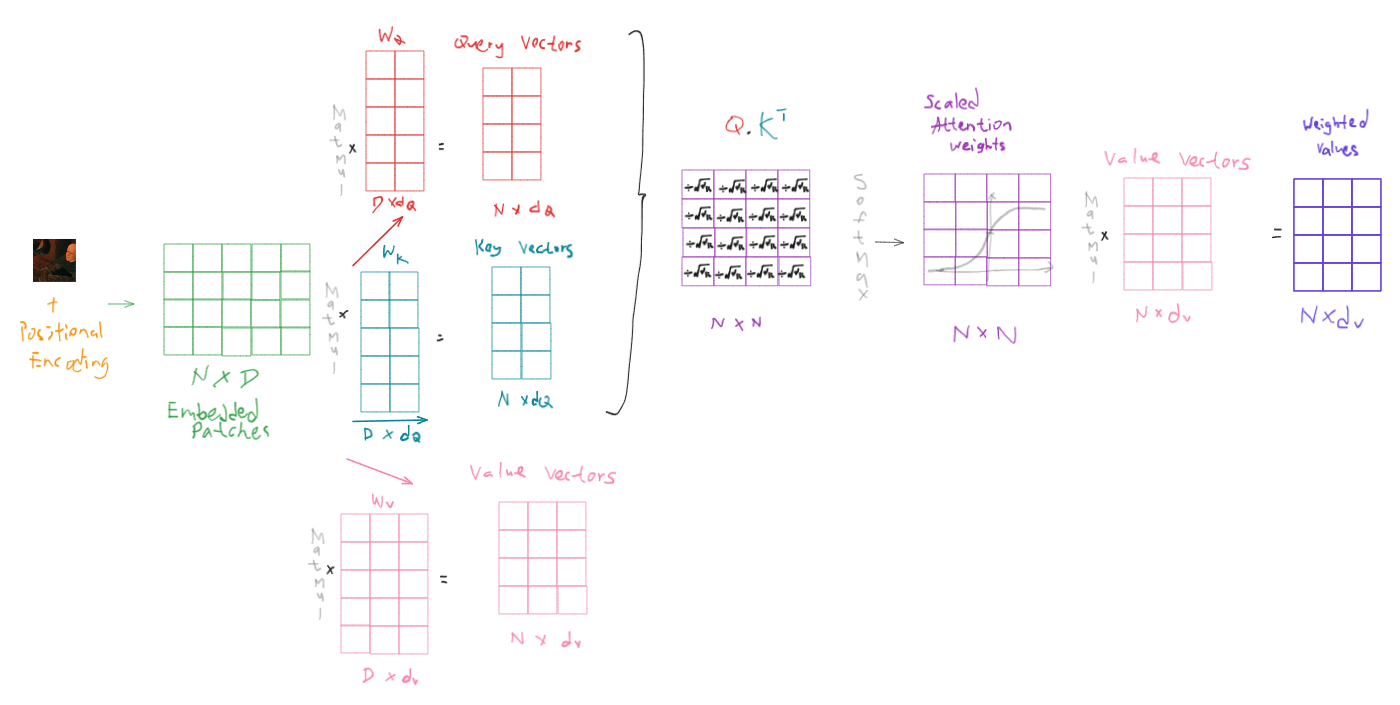 +
Positional
Encoding
N x D
Embedded
Patches
Matmul
x
WQ
D x dQ
=
Query Vectors
N x dQ
Matmul
x
WK
D x dQ
=
Key Vectors
N x dQ
Matmul
x
Wv
D x dv
=
Value Vectors
N x dv
Q.K^T
÷√dk ÷√dk ÷√dk ÷√dk
÷√dk ÷√dk ÷√dk ÷√dk
÷√dk ÷√dk ÷√dk ÷√dk
÷√dk ÷√dk ÷√dk ÷√dk
N x N
Softmax
Scaled
Attention
weights
N x N
Matmul
x
Value Vectors
N x dv
=
Weighted
Values
N x dv